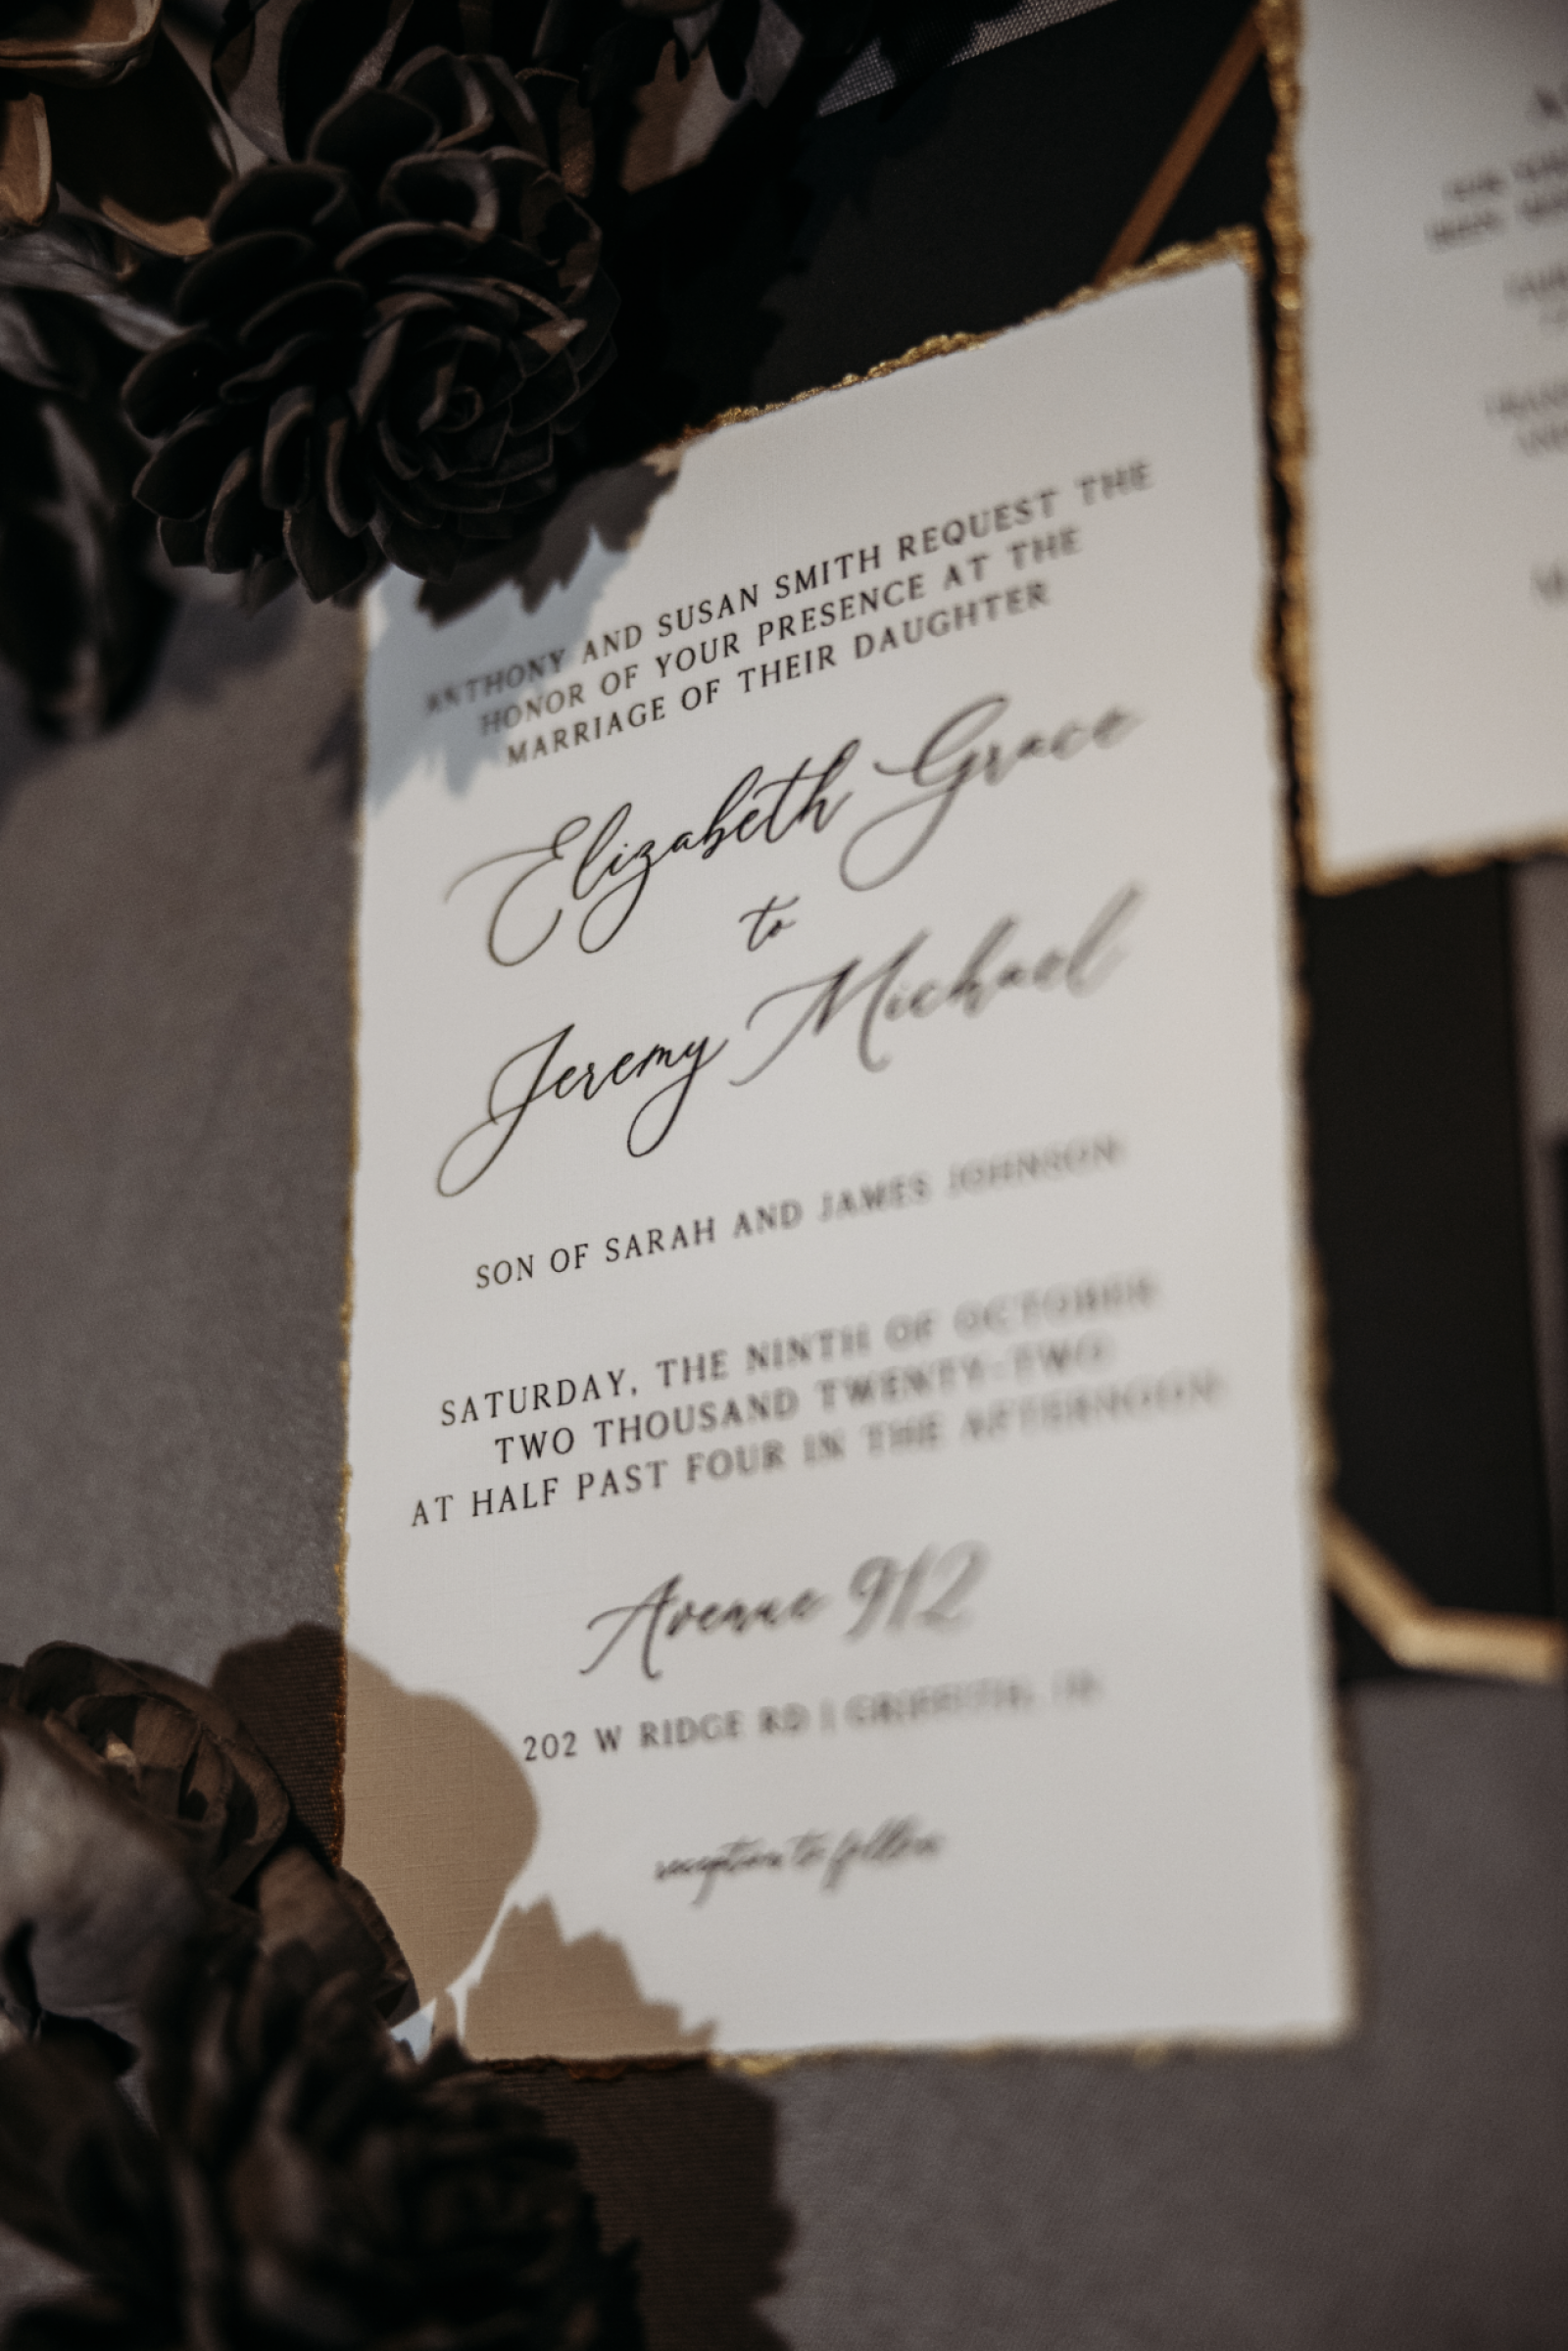 ANTHONY AND SUSAN SMITH REQUEST THE
HONOR OF YOUR PRESENCE AT THE
MARRIAGE OF THEIR DAUGHTER
Elizabeth Grace
to
Jeremy Michael
SON OF SARAH AND JAMES JOHNSON
SATURDAY, THE NINTH OF OCTOBER
TWO THOUSAND TWENTY-TWO
AT HALF PAST FOUR IN THE AFTERNOON
Avenue 912
202 W RIDGE RD | GRIFFITH, IN
reception to follow